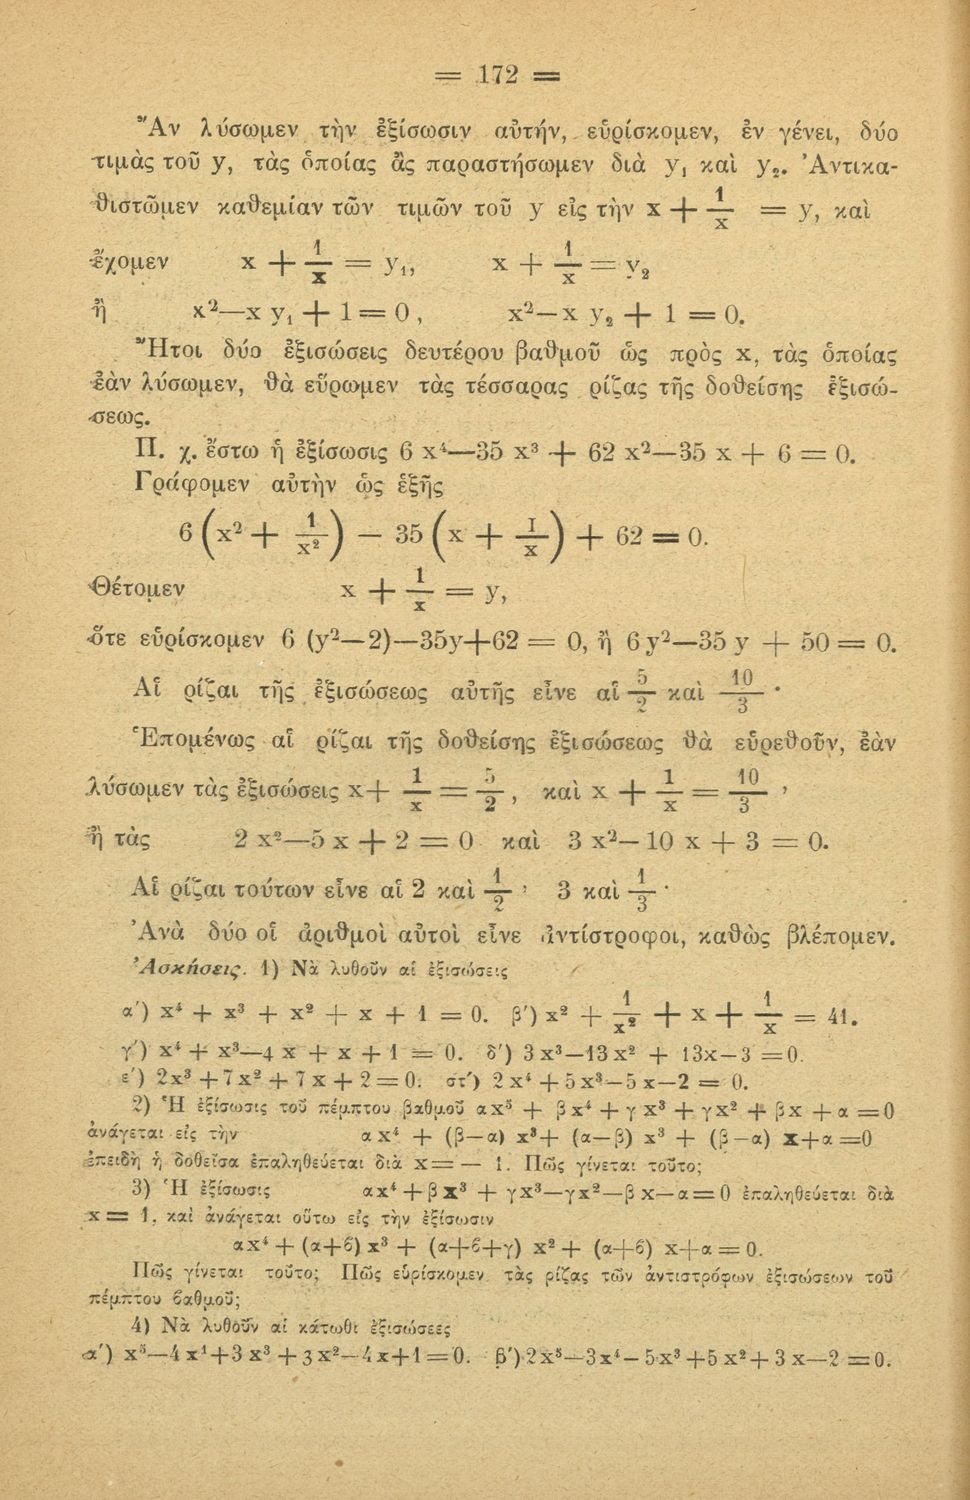 = 172 =
Ἂν λύσωμεν τὴν ἐξίσωσιν αὐτήν, εὑρίσκομεν, ἐν γένει, δύο
τιμὰς τοῦ y, τὰς ὁποίας ἂς παραστήσωμεν διὰ y₁ καὶ y₂. Ἀντικα-
θιστῶμεν καθεμίαν τῶν τιμῶν τοῦ y εἰς τὴν x + 1/x = y, καὶ
ἔχομεν x + 1/x = y₁, x + 1/x = y₂
ἢ x²—x y₁ + 1 = 0, x²—x y₂ + 1 = 0.
Ἤτοι δύο ἐξισώσεις δευτέρου βαθμοῦ ὡς πρὸς x, τὰς ὁποίας
ἐὰν λύσωμεν, θὰ εὕρωμεν τὰς τέσσαρας ρίζας τῆς δοθείσης ἐξισώ-
σεως.
Π. χ. ἔστω ἡ ἐξίσωσις 6 x⁴—35 x³ + 62 x²—35 x + 6 = 0.
Γράφομεν αὐτὴν ὡς ἑξῆς
6 (x² + 1/x²) — 35 (x + 1/x) + 62 = 0.
Θέτομεν x + 1/x = y,
ὅτε εὑρίσκομεν 6 (y²—2)—35y+62 = 0, ἢ 6 y²—35 y + 50 = 0.
Αἱ ρίζαι τῆς ἐξισώσεως αὐτῆς εἶνε αἱ 5/2 καὶ 10/3 ·
Ἑπομένως αἱ ρίζαι τῆς δοθείσης ἐξισώσεως θὰ εὑρεθοῦν, ἐὰν
λύσωμεν τὰς ἐξισώσεις x + 1/x = 5/2, καὶ x + 1/x = 10/3,
ἢ τὰς 2 x²—5 x + 2 = 0 καὶ 3 x²—10 x + 3 = 0.
Αἱ ρίζαι τούτων εἶνε αἱ 2 καὶ 1/2, 3 καὶ 1/3 ·
Ἀνὰ δύο οἱ ἀριθμοὶ αὐτοὶ εἶνε ἀντίστροφοι, καθὼς βλέπομεν.
Ἀσκήσεις. 1) Νὰ λυθοῦν αἱ ἐξισώσεις
α΄) x⁴ + x³ + x² + x + 1 = 0. β΄) x² + 1/x² + x + 1/x = 41.
γ΄) x⁴ + x³—4 x + x + 1 = 0. δ΄) 3 x³—13 x² + 13x—3 = 0.
ε΄) 2x³ + 7 x² + 7 x + 2 = 0. στ΄) 2 x⁴ + 5 x³—5 x—2 = 0.
2) Ἡ ἐξίσωσις τοῦ πέμπτου βαθμοῦ αx⁵ + βx⁴ + γ x³ + γx² + βx + α = 0
ἀνάγεται εἰς τὴν αx⁴ + (β—α) x³ + (α—β) x³ + (β—α) x+α =0
ἐπειδὴ ἡ δοθεῖσα ἐπαληθεύεται διὰ x = — 1. Πῶς γίνεται τοῦτο;
3) Ἡ ἐξίσωσις αx⁴ + βx³ + γx³—γx²—β x—α = 0 ἐπαληθεύεται διὰ
x = 1, καὶ ἀνάγεται οὕτω εἰς τὴν ἐξίσωσιν
αx⁴ + (α+ϐ) x³ + (α+ϐ+γ) x² + (α+ϐ) x+α = 0.
Πῶς γίνεται τοῦτο; Πῶς εὑρίσκομεν τὰς ρίζας τῶν ἀντιστρόφων ἐξισώσεων τοῦ
πέμπτου ϐαθμοῦ;
4) Νὰ λυθοῦν αἱ κάτωθι ἐξισώσεες
α΄) x⁵—4 x⁴+3 x³ + 3 x²—4 x+1 = 0. β΄) 2 x⁵—3x⁴—5 x³ +5 x² + 3 x—2 = 0.